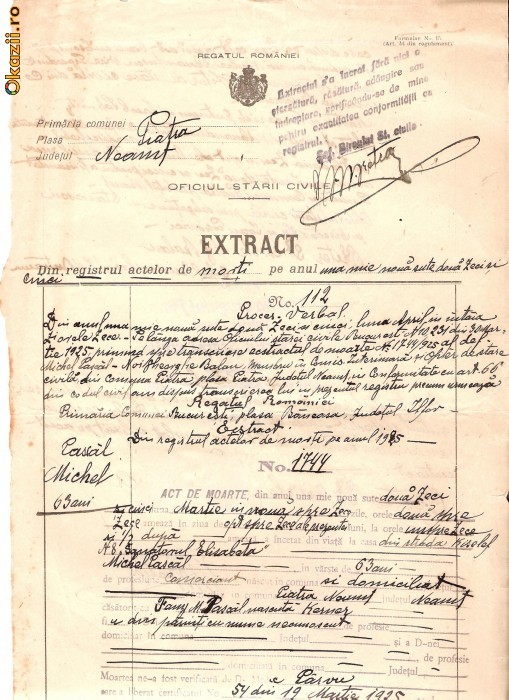 Okazii.ro
Formular Nr. 15.
(Art. 84 din regulament).
REGATUL ROMÂNIEI
Extractul s'a lucrat fără nici o
ștersătură, răsătură, adăugire sau
îndreptare, verificându-se de mine
pentru exactitatea conformității cu
registrul.
Șef. Biroului St. civile
Primăria comunei Piatra
Plasa
Județul Neamț
OFICIUL STĂRII CIVILE
EXTRACT
Din registrul actelor de morți pe anul una mie nouă sute două zeci și
cinci
No. 112
Proces-Verbal
Din anul una mie nouă sute două zeci și cinci, luna April, în întâia
zi orele zece. Pe lângă adresa Oficiului stărei civile București No 10,231 din 30 Mar-
tie 1925, primim spre transcriere extractul de moarte No 1744/925 al def.
Michel Pascal. Noi Gheorghe Balan, membru în Comis. Interimară și ofițer de stare
civilă din Comuna Piatra, plasa Piatra Județul Neamț, în Conformitate cu art. 66
din codul civil, am dispus transcrierea lui în prezentul registru precum urmează
Regatul României
Primăria Comunei București, plasa Băneasa, Județul Ilfov
Extract
Din registrul actelor de morți pe anul 1925
No. 1744
Pascal
Michel
63 ani
ACT DE MOARTE, din anul una mie nouă sute două zeci
și cinci Martie în nouă spre zece orele două spre
zece amează în ziua de opt spre zece prezente la orele unspre zece
și 1/2 după a încetat din viață la casa din strada Kiselef
No. "Sanatoriul Elisabeta"
Michel Pascal în vârstă de 63 ani
de profesie Comerciant născut în comuna și domiciliat
Piatra Neamț Neamț
căsător cu Fany M. Pascal născută
a dros. părinți cu nume necunoscut de profesie
domiciliat în comuna Județul și a D-nei
de profesie
domiciliată în comuna Județul
Moartea ne-a fost verificată de D-
care a liberat certificatul No. 54 din 19 Martie 1925